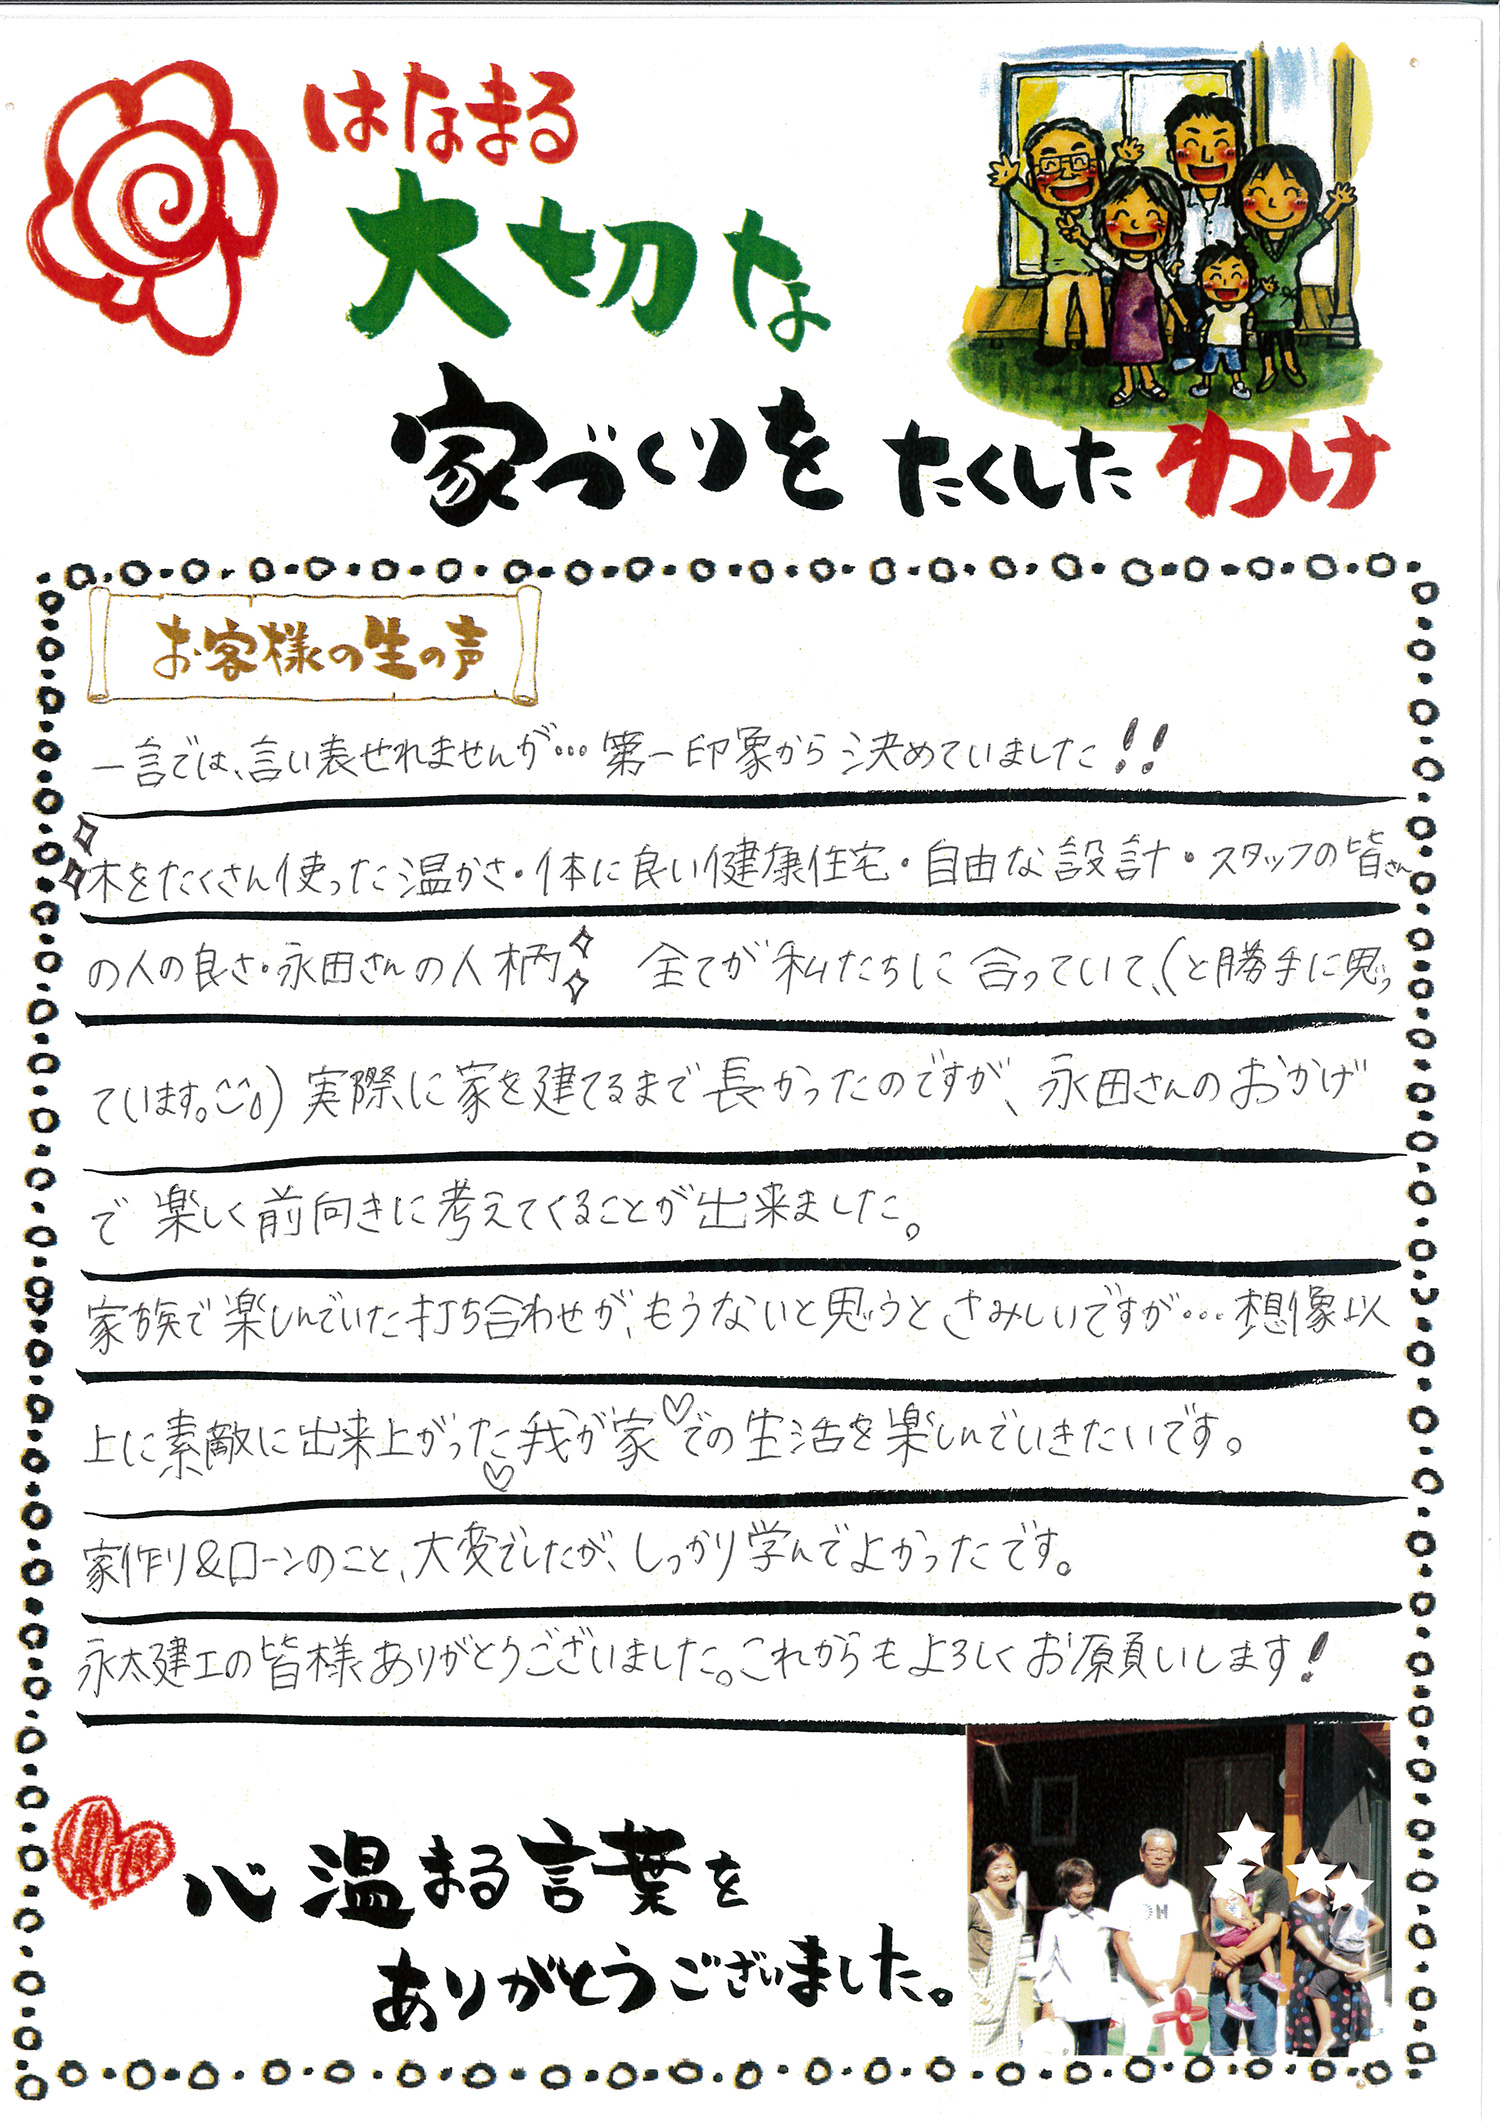 はなまる
大切な
家づくりを たくした わけ
お客様の生の声
一言では、言い表せれませんが…第一印象から決めていました!!
木をたくさん使った温かさ・体に良い健康住宅・自由な設計・スタッフの皆さん
の人の良さ・永田さんの人柄 全てが私たちに合っていて、(と勝手に思っ
ています。^^) 実際に家を建てるまで長かったのですが、永田さんのおかげ
で楽しく前向きに考えてくることが出来ました。
家族で楽しんでいた打ち合わせが、もうないと思うとさみしいですが…想像以
上に素敵に出来上がった我が家♡での生活を楽しんでいきたいです。
家作り&ローンのこと、大変でしたが、しっかり学んでよかったです。
永太建工の皆様ありがとうございました。これからもよろしくお願いします!
心温まる言葉を
ありがとうございました。